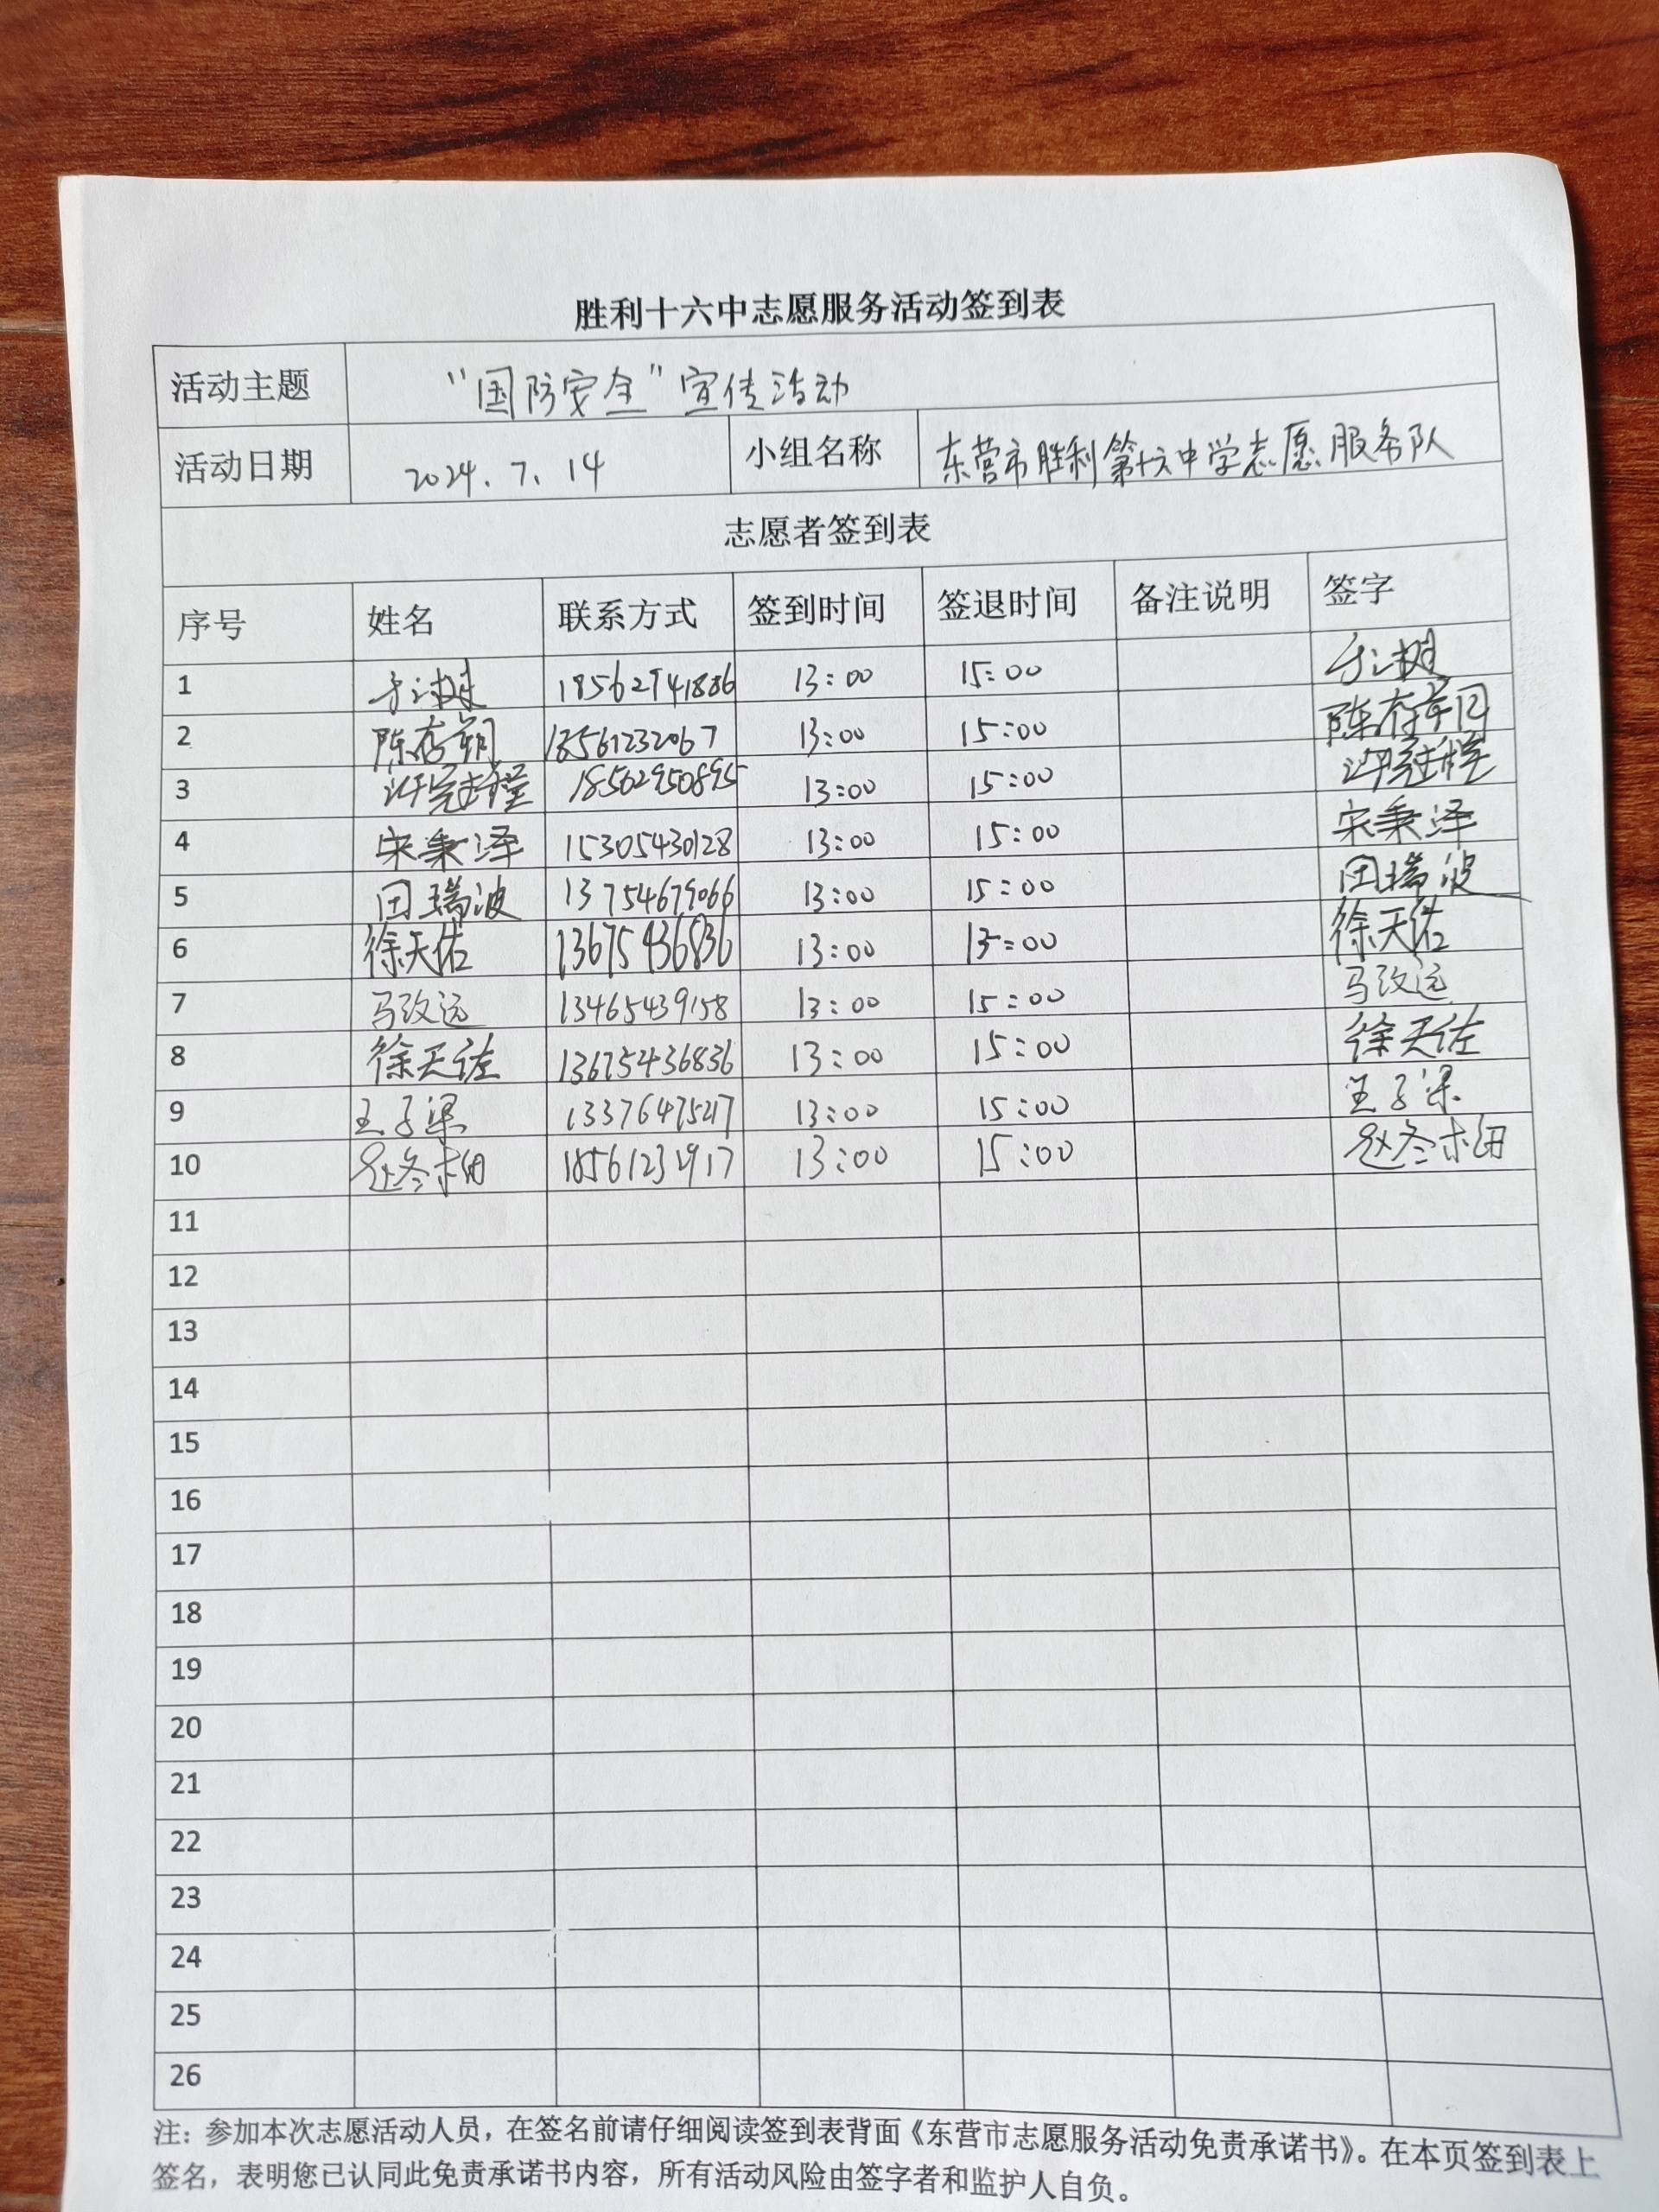 胜利十六中志愿服务活动签到表
活动主题 “国防安全”宣传活动
活动日期 2024.7.14 小组名称 东营市胜利第十六中学志愿服务队
志愿者签到表
序号 姓名 联系方式 签到时间 签退时间 备注说明 签字
1 18562941886 13:00 15:00
2 陈存朝 18561232067 13:00 15:00 陈存朝
3 18562950895 13:00 15:00
4 宋秉泽 15305430128 13:00 15:00 宋秉泽
5 田瑞波 13754679066 13:00 15:00 田瑞波
6 徐天佑 13675436836 13:00 15:00 徐天佑
7 马改远 13465439158 13:00 15:00 马改远
8 徐天佐 13675436836 13:00 15:00 徐天佐
9 王子梁 13:00 15:00 王子梁
10 赵冬 18561231917 13:00 15:00 赵冬
11
12
13
14
15
16
17
18
19
20
21
22
23
24
25
26
注：参加本次志愿活动人员，在签名前请仔细阅读签到表背面《东营市志愿服务活动免责承诺书》。在本页签到表上
签名，表明您已认同此免责承诺书内容，所有活动风险由签字者和监护人自负。